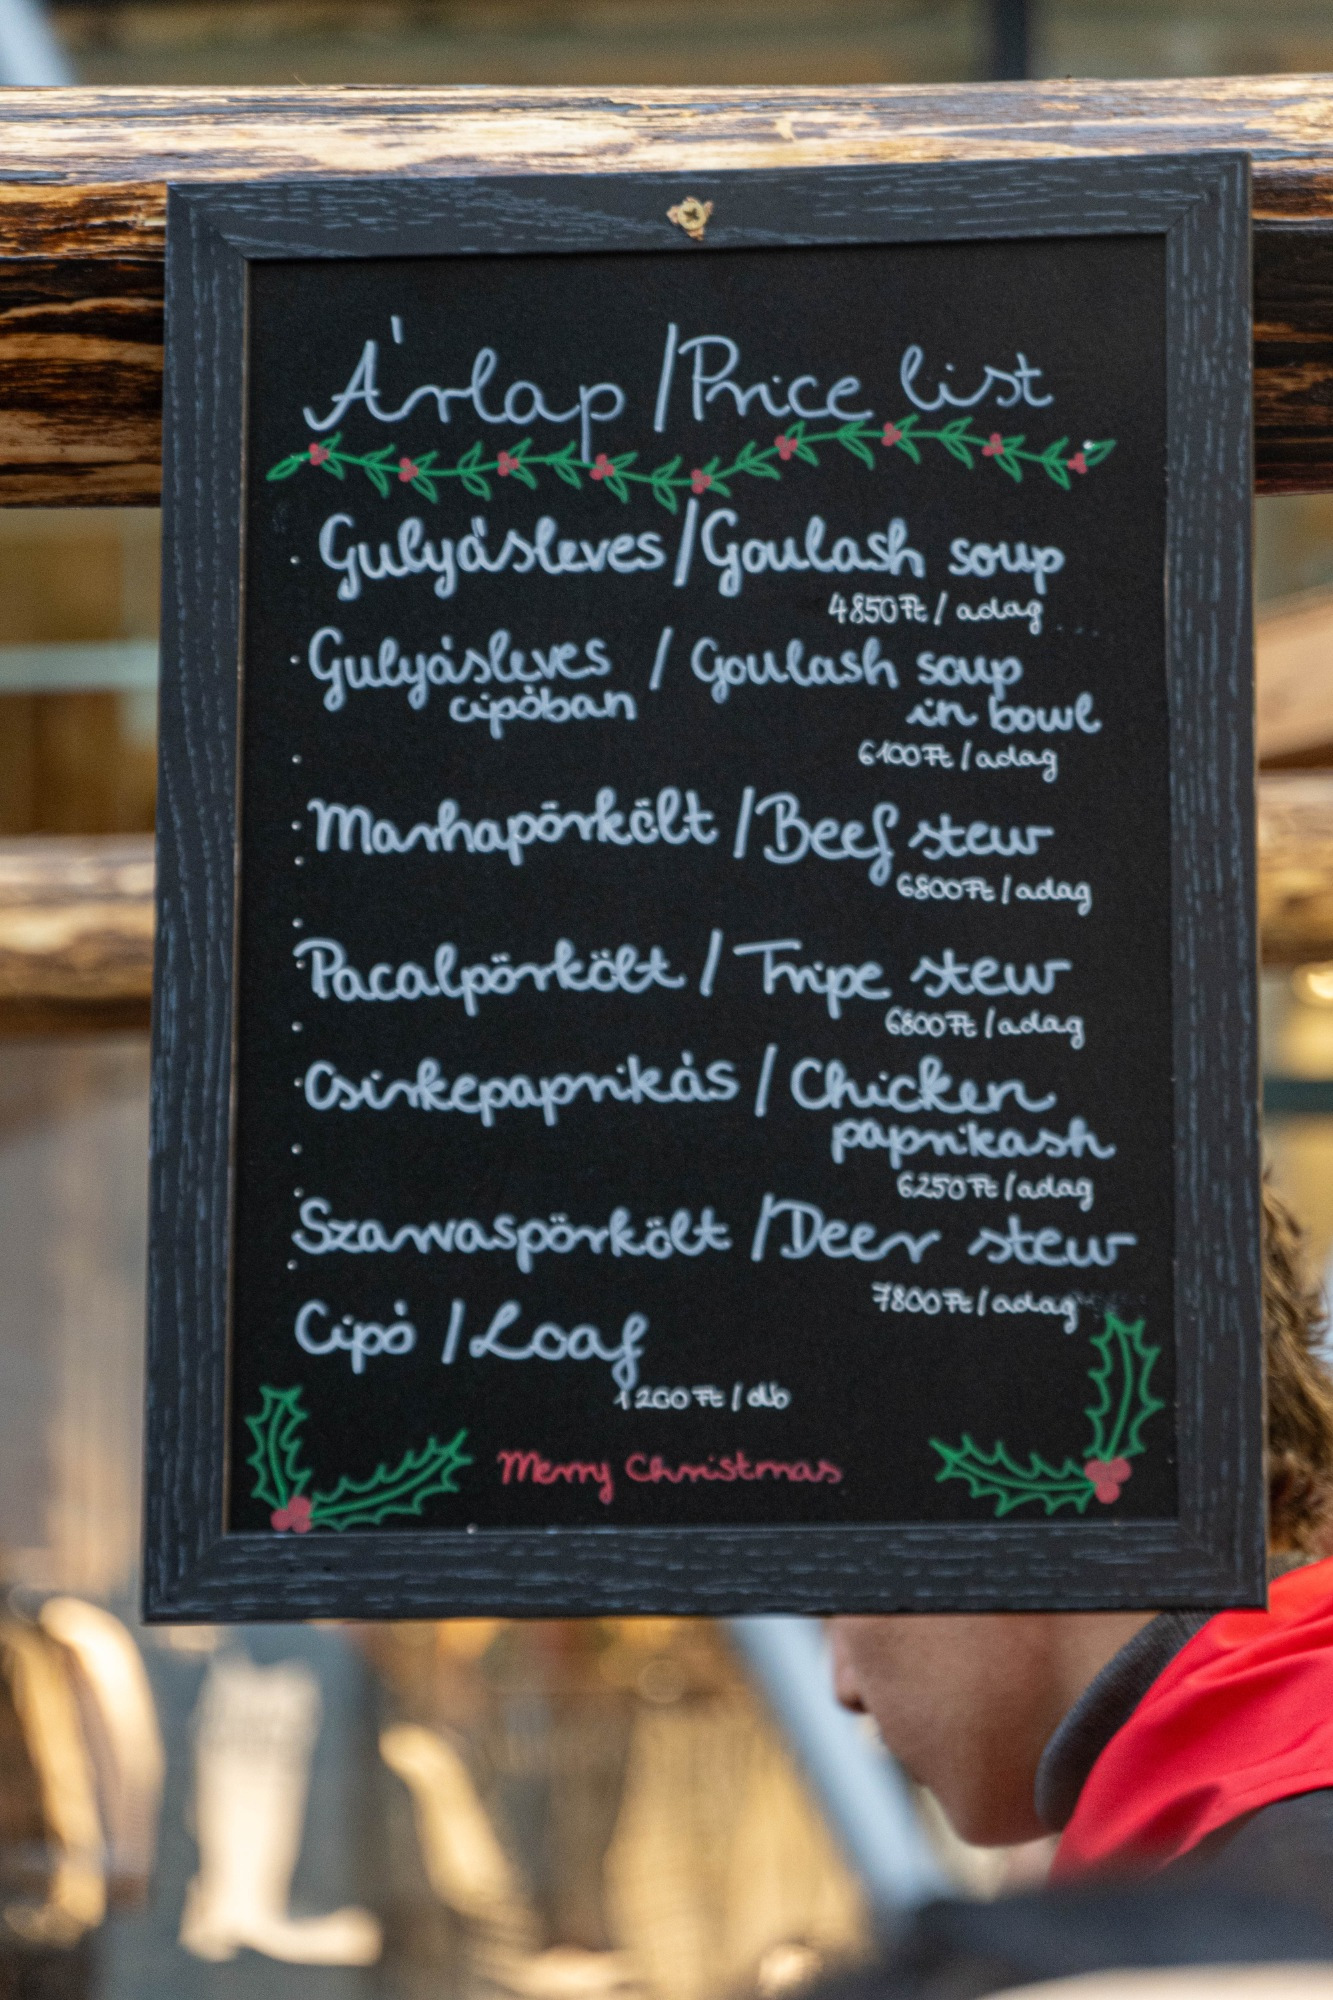 Árlap / Price list
Gulyásleves / Goulash soup
4850 Ft / adag
Gulyásleves / Goulash soup
cipóban in bowl
6100 Ft / adag
Marhapörkölt / Beef stew
6800 Ft / adag
Pacalpörkölt / Tripe stew
6800 Ft / adag
Csirkepaprikás / Chicken
paprikash
6250 Ft / adag
Szarvaspörkölt / Deer stew
7800 Ft / adag
Cipó / Loaf
1200 Ft / db
Merry Christmas